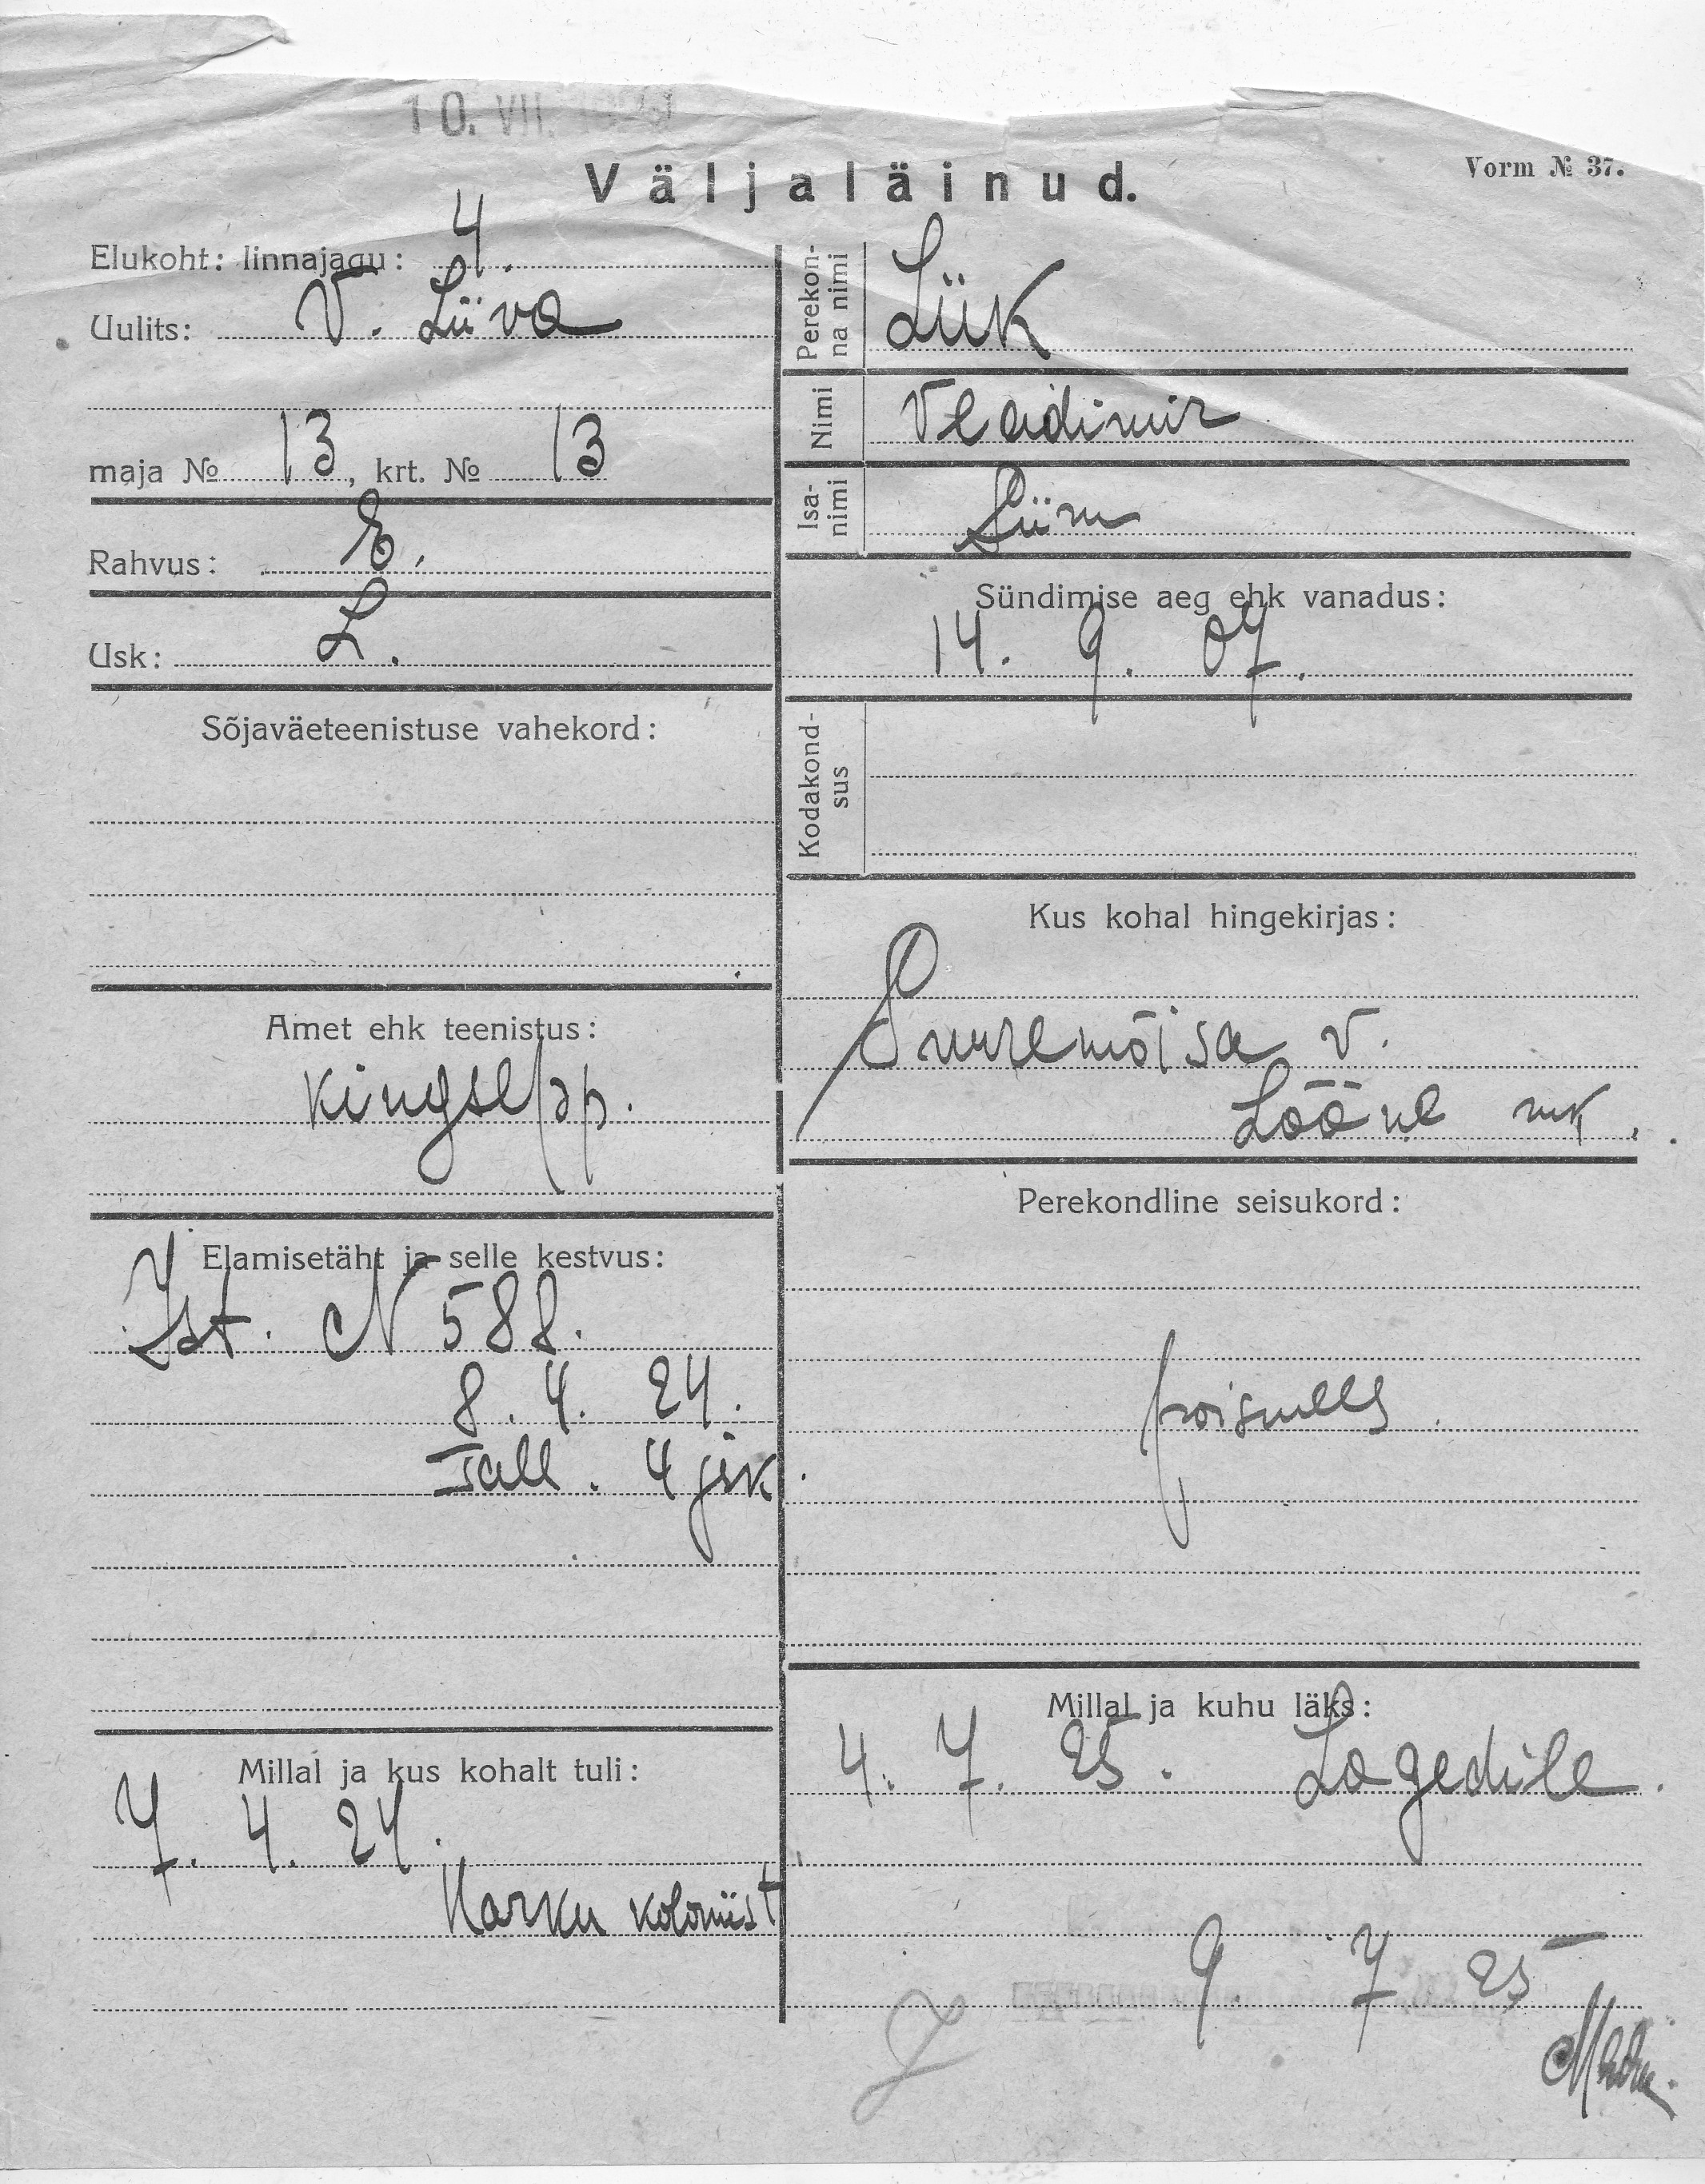 10. VII.
Väljaläinud.
Vorm № 37.
Elukoht: linnajagu: 4.
Uulits: V. Liiva
maja № 13, krt. № 13
Rahvus: E.
Usk: L.
Sõjaväeteenistuse vahekord:
Amet ehk teenistus:
Kingsepp.
Elamisetäht ja selle kestvus:
Ist. N 588.
8. 4. 24.
Tall. 4 jsk.
Millal ja kus kohalt tuli:
7. 4. 24.
Harku koloniist
Perekonna nimi
Liik
Nimi
Vladimir
Isanimi
Siim
Sündimise aeg ehk vanadus:
14. 9. 07.
Kodakondsus
Kus kohal hingekirjas:
Suuremõisa v.
Lääne mk.
Perekondline seisukord:
poismees.
Millal ja kuhu läks:
4. 7. 25. Lagedile.
9. 7 25